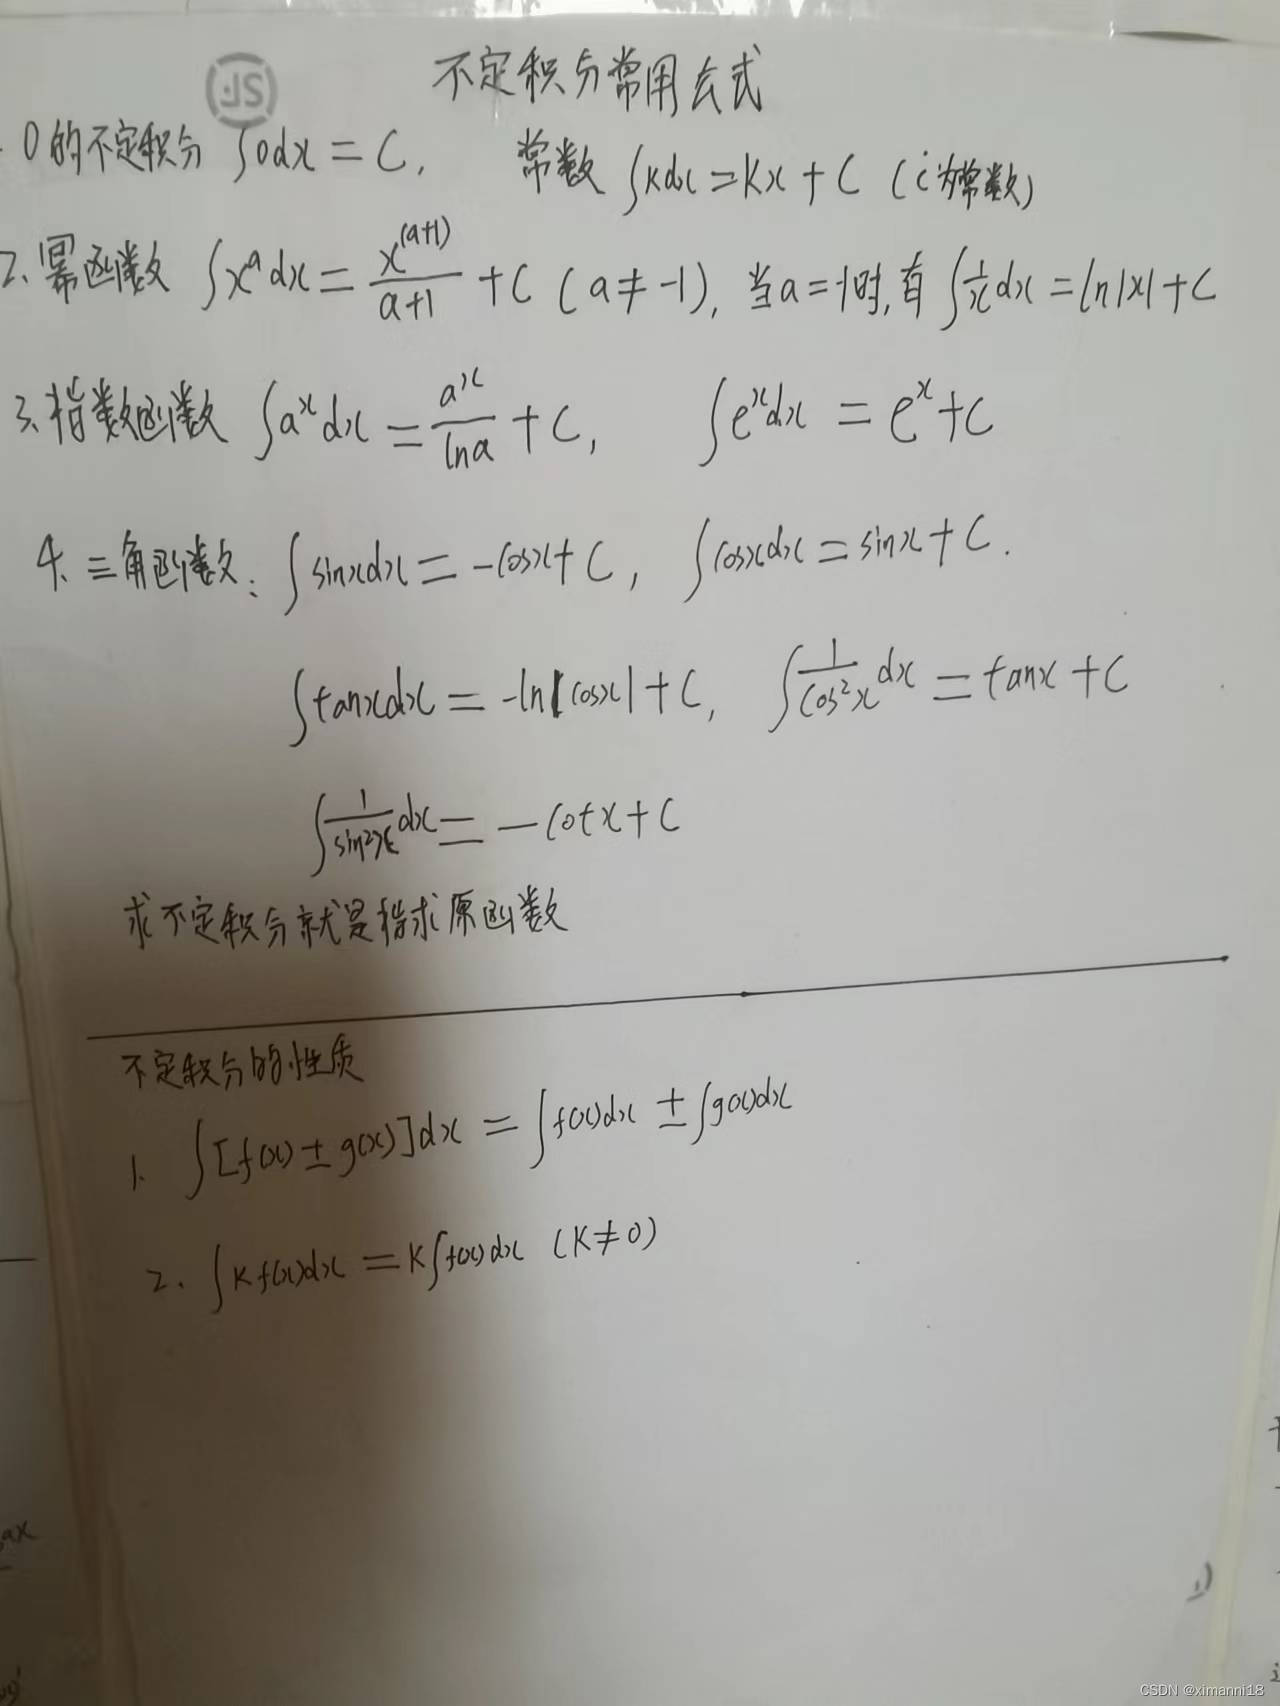 不定积分常用公式
JS
0的不定积分 ∫0dx = C, 常数 ∫Kdx = Kx + C (C为常数)
2. 幂函数 ∫x^a dx = x^(a+1)/(a+1) + C (a ≠ -1), 当a = -1时, 有 ∫1/x dx = ln|x| + C
3. 指数函数 ∫a^x dx = a^x/lna + C, ∫e^x dx = e^x + C
4. 三角函数: ∫sinxdx = -cosx + C, ∫cosxdx = sinx + C.
∫tanxdx = -ln|cosx| + C, ∫1/cos²x dx = tanx + C
∫1/sin²x dx = -cotx + C
求不定积分就是指求原函数
不定积分的性质
1. ∫[f(x) ± g(x)]dx = ∫f(x)dx ± ∫g(x)dx
2. ∫Kf(x)dx = K∫f(x)dx (K ≠ 0)
CSDN @ximanni18